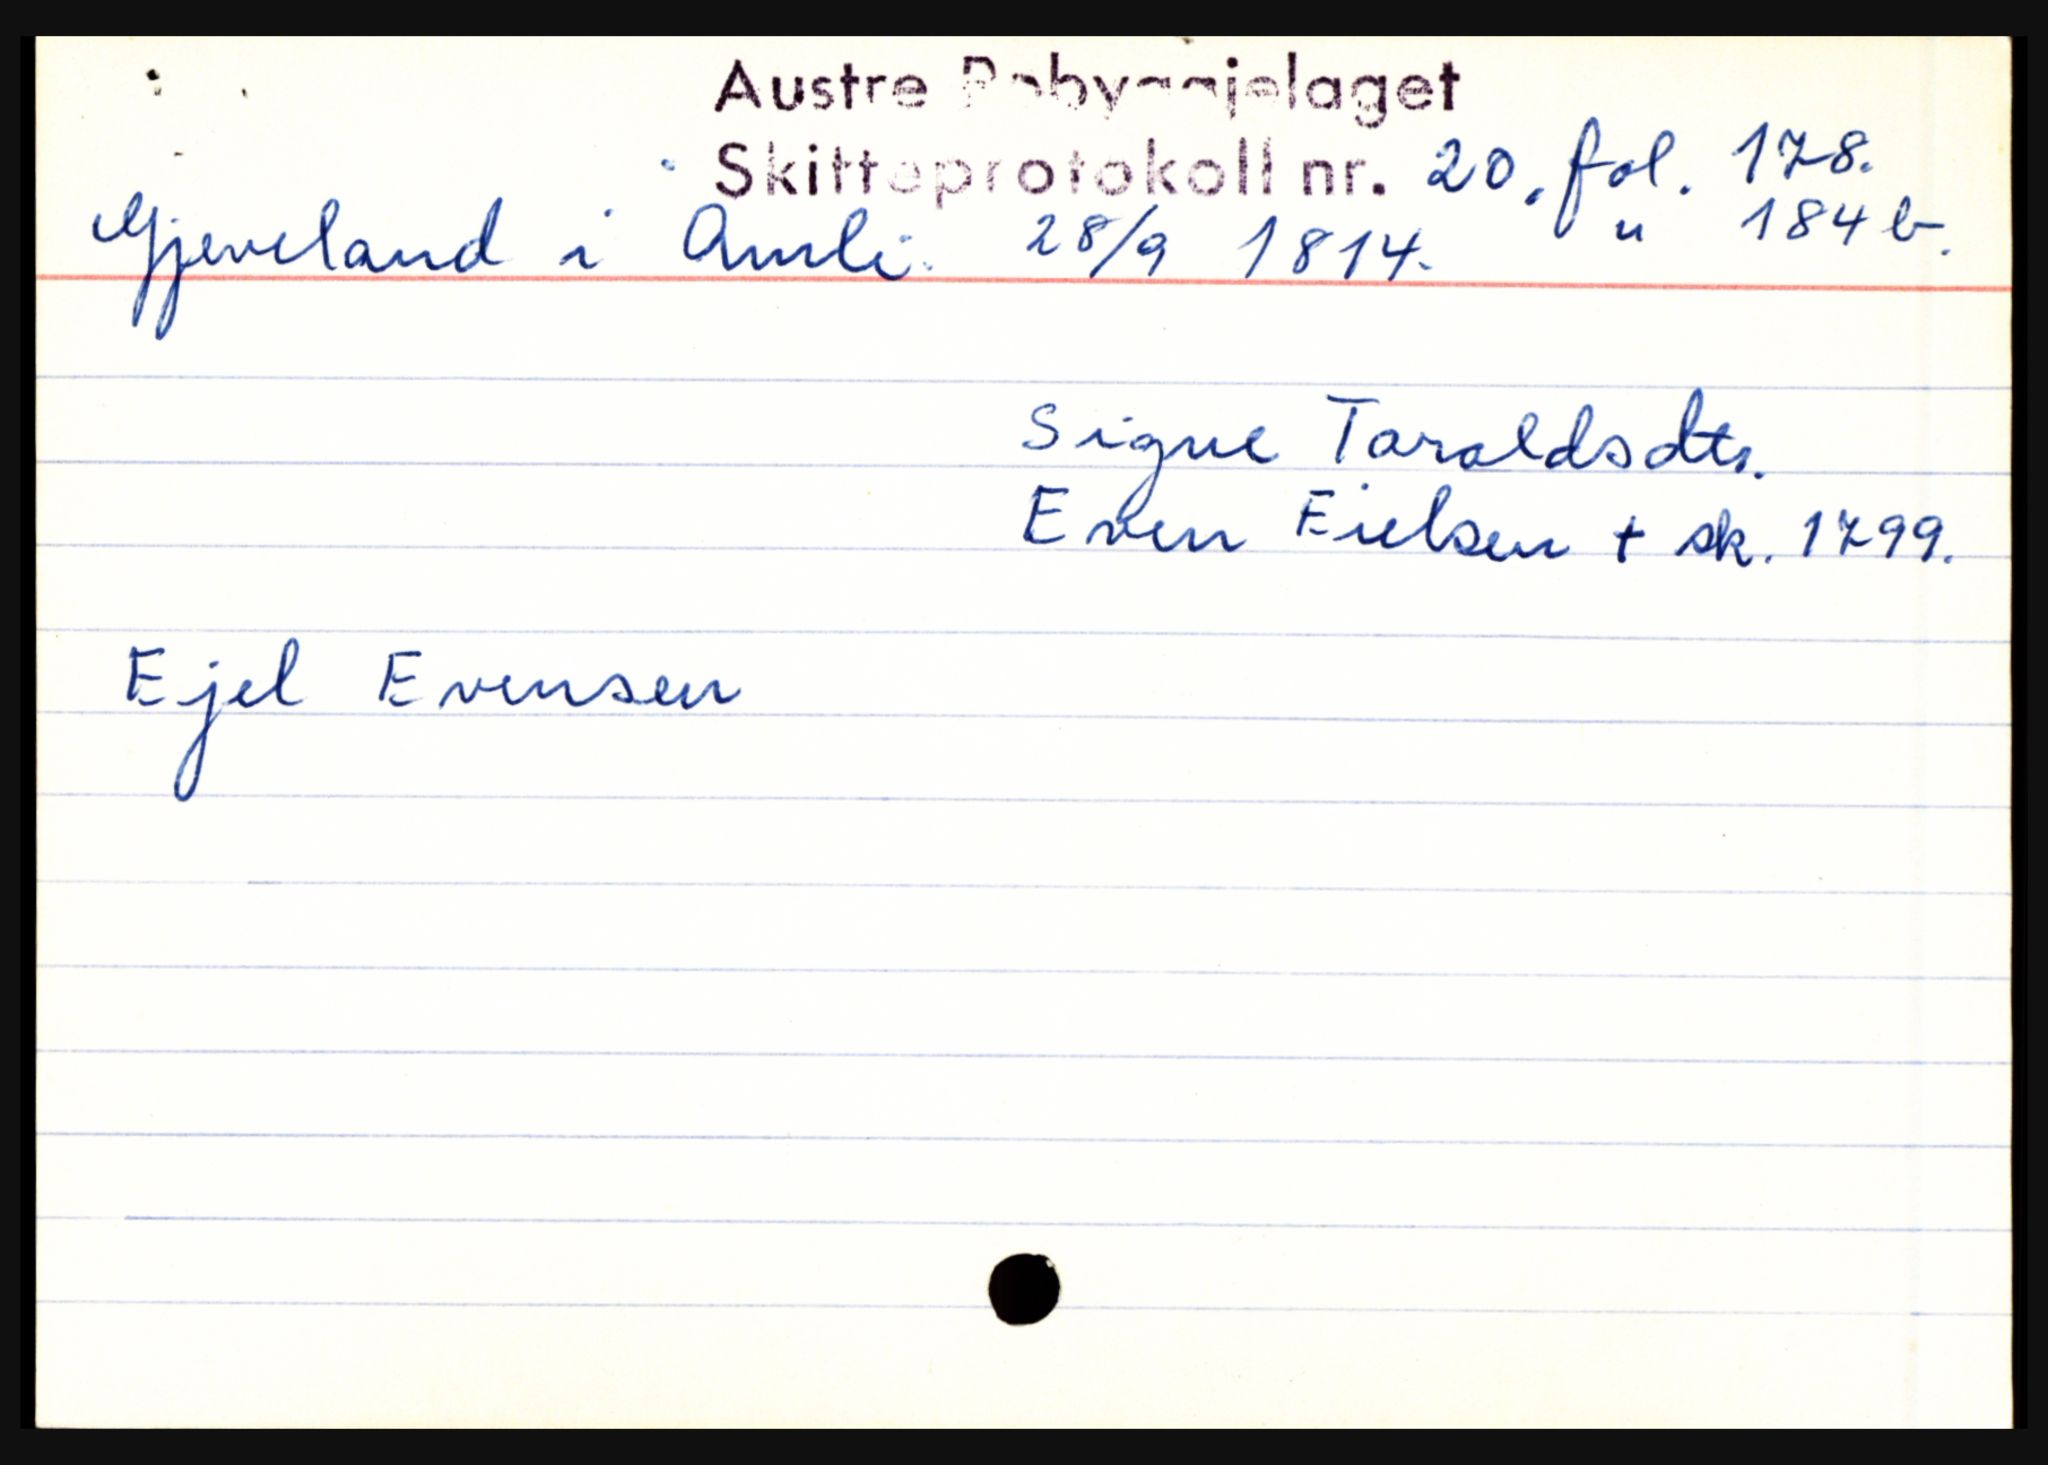 Austre Robyggjelaget
Skifteprotokoll nr. 20. fol. 178.
Gjeveland i Amli. 28/9 1814. " 184 b.
Signe Taraldsdtr.
Even Eielsen + sk. 1799.
Ejel Evensen